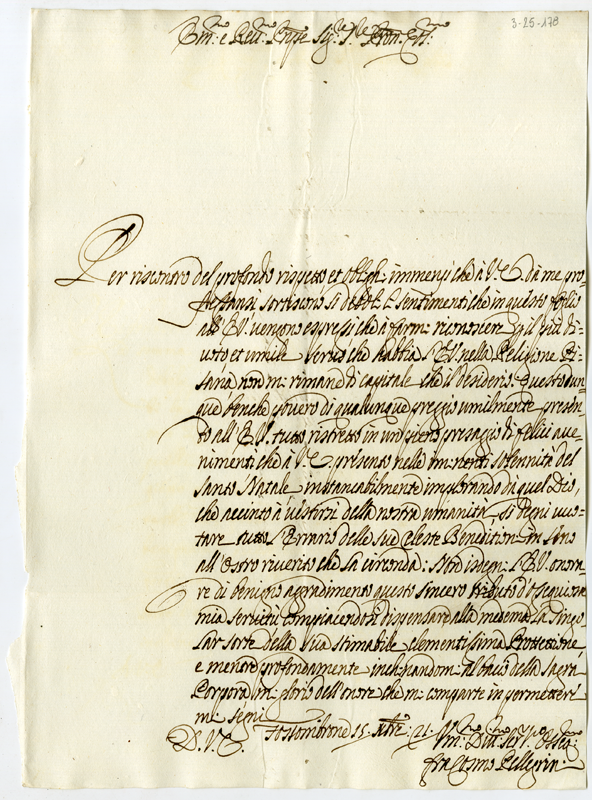 3-25-178
Em:mo e Rev:mo Prnpe Sig:re S:re Pron: Col:mo
Per riscontro del profondo rispetto et obligh: immensi che à V. E. da me pro-
fessansi sortiscono sì deboli i sentimenti che in questo foglio
all' E. V. vengono espressi che à farm: riconoscere p il più di-
voto, et umile servo che habbia l' E. V. nella Religione Pi-
sana non m: rimane di capitale che il desiderio. Questo dun-
que benche povero di qualunque pregio umilmente presen-
to all' E. V. tutto ristretto in un pieno presagio di felici avve-
nimenti che à V. E. presento nelle imminenti solennità del
Santo Natale instancabilmente implorando da quel Dio,
che accinto à vestirsi della nostra umanità si degni vuo-
tare tutto l' Errario delle sue celeste Benedition in seno
all' Ostro riverito che la circonda: Non isdegn: l' E. V. onora-
re di benigno aggradimento questo sincero tributo d' ossequiosa
mia servitù compiacendosi dispensare alla medema la singo-
lar sorte della sua stimabile clementissima Prottettione,
e mentre profondamente inchinandom: al bacio della Sagra
Porpora m: glorio dell' onore che m: comparte in permetterm:
m: segni
D. V. E. Fossombrone 15 Xbre: 21. Um:mo Div:mo Ser:re Osseq:mo
fra Cosmo Pellegrin: